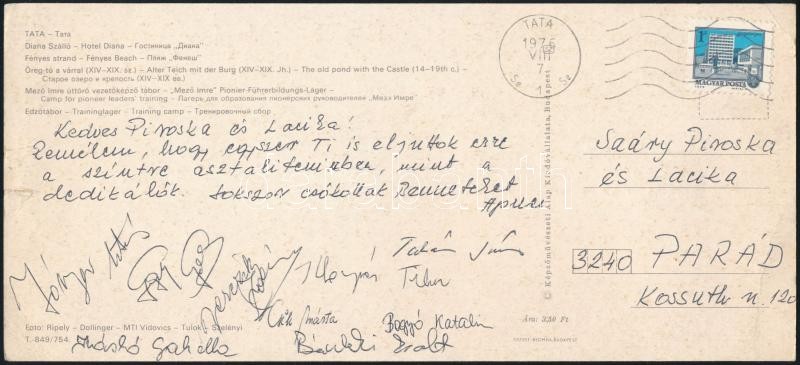 TATA – Tata
Diana Szálló – Hotel Diana – Гостиница „Диана"
Fényes strand – Fényes Beach – Пляж „Фенеш"
Öreg-tó a várral (XIV–XIX. sz.) – Alter Teich mit der Burg (XIV–XIX. Jh.) – The old pond with the Castle (14–19th c.) –
Старое озеро и крепость (XIV–XIX вв.)
Mező Imre úttörő vezetőképző tábor – „Mező Imre" Pionier-Führerbildungs-Lager –
Camp for pioneer leaders' training – Лагерь для образования пионерских руководителей „Мезэ Имре"
Edzőtábor – Trainingslager – Training camp – Тренировочный сбор
Kedves Piroska és Lacika!
Remélem, hogy egyszer Ti is eljuttok erre
a szintre asztaliteniszben, mint a
dedikálók. Sokszor csókollak Benneteket
Apuci
TATA
1976
VIII
7
MAGYAR POSTA
Saáry Piroska
és Lacika
3240 PARÁD
Kossuth u. 120
Takács János
Tibor
Kék Márta
Bagyó Katalin
Foto: Ripely – Dollinger – MTI Vidovics – Tulok – Szelényi
T.-849/754.
Gabriella
Zsolt
Ára: 3,50 Ft
© Képzőművészeti Alap Kiadóvállalata, Budapest